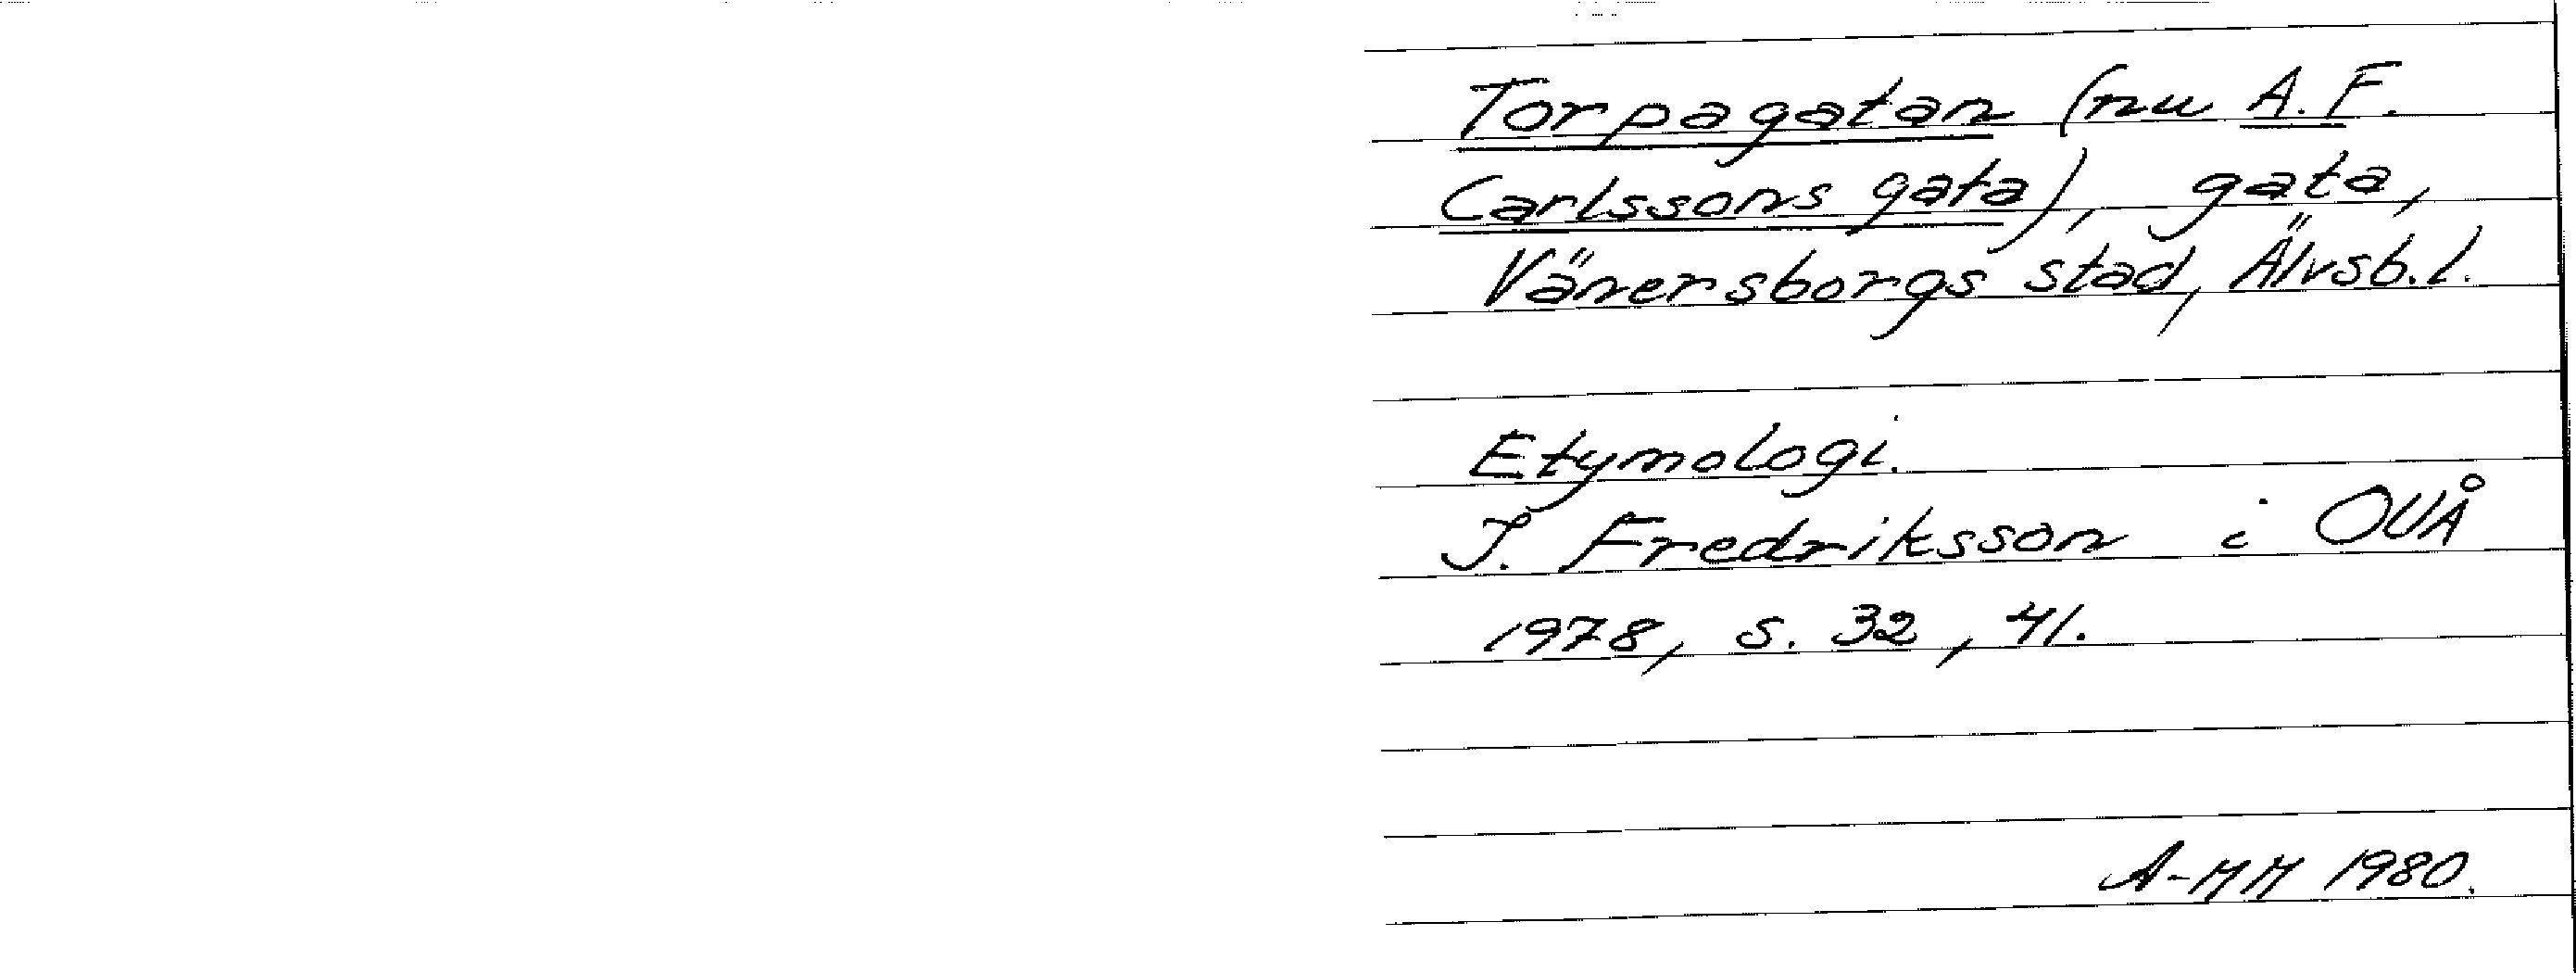 Torpagatan (nu A.F.
Carlssons gata), gata,
Vänersborgs stad, Älvsb.l.
Etymologi.
I. Fredriksson i OUÅ
1978, s. 32, 41.
A-MM 1980.